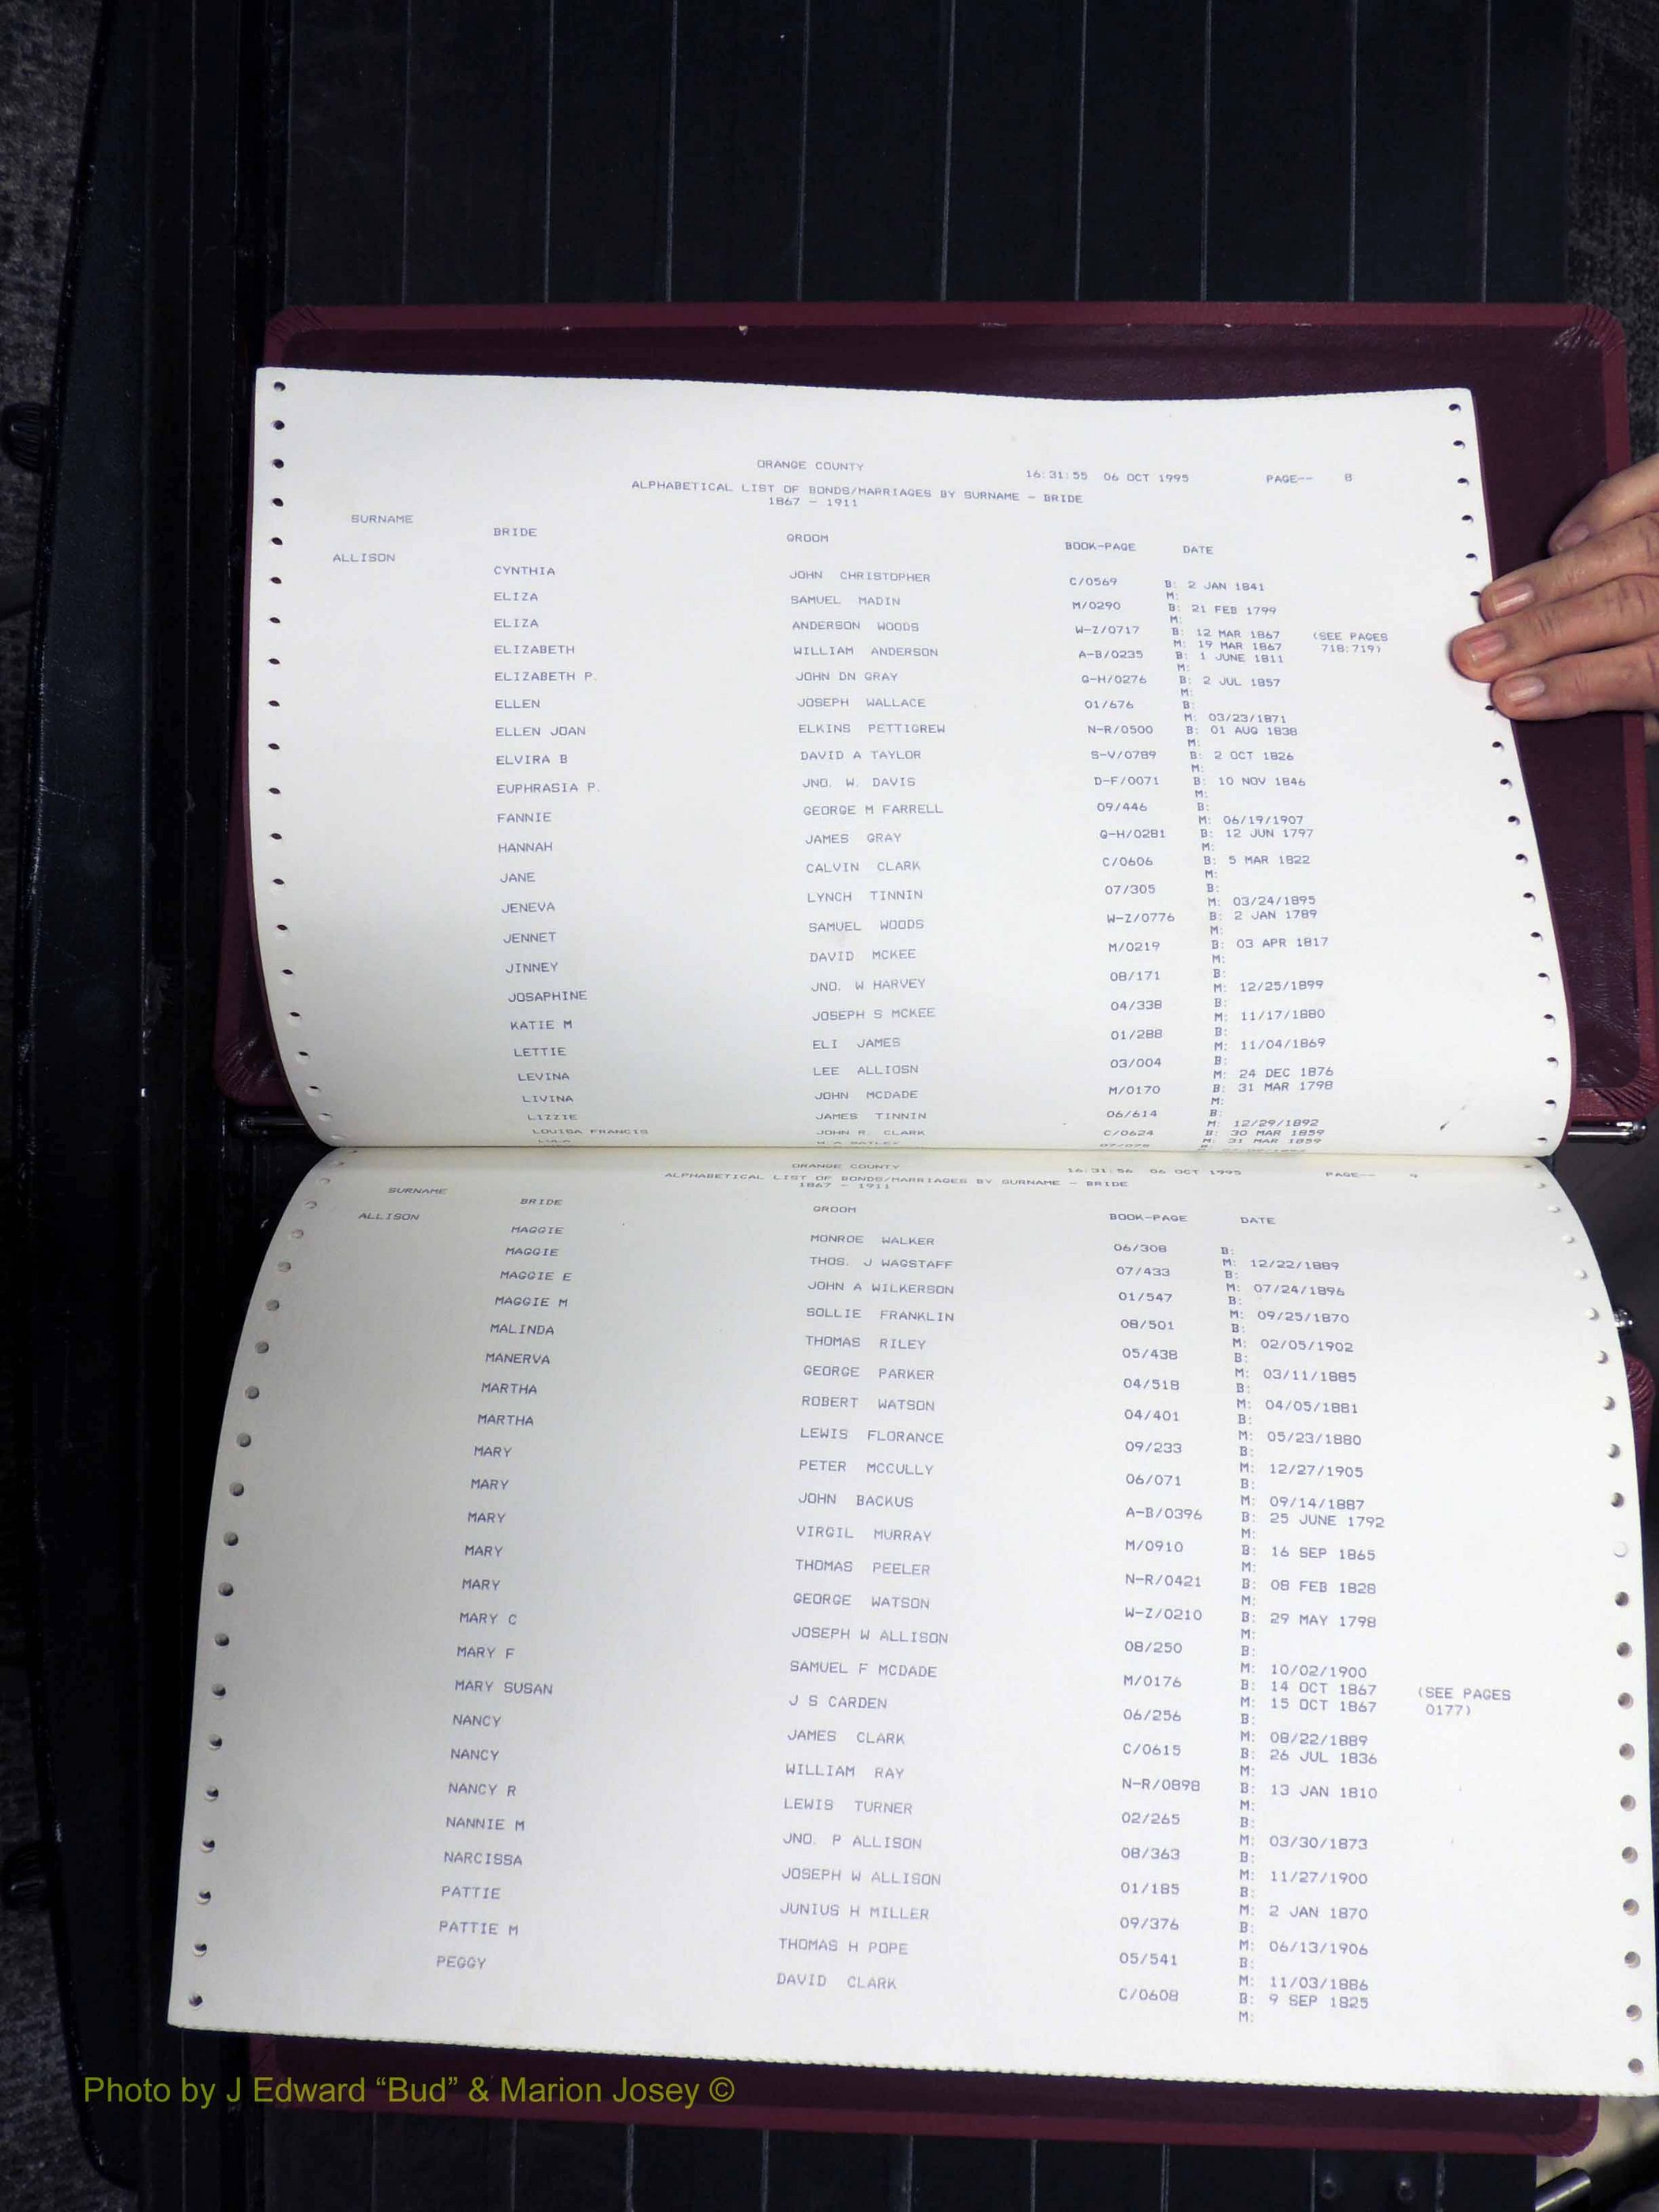 ORANGE COUNTY 16:31:55 06 OCT 1995 PAGE-- 8
ALPHABETICAL LIST OF BONDS/MARRIAGES BY SURNAME - BRIDE
1867 - 1911
SURNAME BRIDE GROOM BOOK-PAGE DATE
ALLISON
CYNTHIA JOHN CHRISTOPHER C/0569 B: 2 JAN 1841
M:
ELIZA SAMUEL MADIN M/0290 B: 21 FEB 1799
M:
ELIZA ANDERSON WOODS W-Z/0717 B: 12 MAR 1867 (SEE PAGES
M: 19 MAR 1867 718:719)
ELIZABETH WILLIAM ANDERSON A-B/0235 B: 1 JUNE 1811
M:
ELIZABETH P. JOHN DN GRAY G-H/0276 B: 2 JUL 1857
M:
ELLEN JOSEPH WALLACE 01/676 B:
M: 03/23/1871
ELLEN JOAN ELKINS PETTIGREW N-R/0500 B: 01 AUG 1838
M:
ELVIRA B DAVID A TAYLOR S-V/0789 B: 2 OCT 1826
M:
EUPHRASIA P. JNO. W. DAVIS D-F/0071 B: 10 NOV 1846
M:
FANNIE GEORGE M FARRELL 09/446 B:
M: 06/19/1907
HANNAH JAMES GRAY G-H/0281 B: 12 JUN 1797
M:
JANE CALVIN CLARK C/0606 B: 5 MAR 1822
M:
JENEVA LYNCH TINNIN 07/305 B:
M: 03/24/1895
JENNET SAMUEL WOODS W-Z/0776 B: 2 JAN 1789
M:
JINNEY DAVID MCKEE M/0219 B: 03 APR 1817
M:
JOSAPHINE JNO. W HARVEY 08/171 B:
M: 12/25/1899
KATIE M JOSEPH S MCKEE 04/338 B:
M: 11/17/1880
LETTIE ELI JAMES 01/288 B:
M: 11/04/1869
LEVINA LEE ALLIOSN 03/004 B:
M: 24 DEC 1876
LIVINA JOHN MCDADE M/0170 B: 31 MAR 1798
M:
LIZZIE JAMES TINNIN 06/614 B:
M: 12/29/1892
LOUISA FRANCIS JOHN R. CLARK C/0624 B: 30 MAR 1859
M: 31 MAR 1859
ORANGE COUNTY 16:31:56 06 OCT 1995 PAGE-- 9
ALPHABETICAL LIST OF BONDS/MARRIAGES BY SURNAME - BRIDE
1867 - 1911
SURNAME BRIDE GROOM BOOK-PAGE DATE
ALLISON
MAGGIE MONROE WALKER 06/308 B:
M: 12/22/1889
MAGGIE THOS. J WAGSTAFF 07/433 B:
M: 07/24/1896
MAGGIE E JOHN A WILKERSON 01/547 B:
M: 09/25/1870
MAGGIE M SOLLIE FRANKLIN 08/501 B:
M: 02/05/1902
MALINDA THOMAS RILEY 05/438 B:
M: 03/11/1885
MANERVA GEORGE PARKER 04/518 B:
M: 04/05/1881
MARTHA ROBERT WATSON 04/401 B:
M: 05/23/1880
MARTHA LEWIS FLORANCE 09/233 B:
M: 12/27/1905
MARY PETER MCCULLY 06/071 B:
M: 09/14/1887
MARY JOHN BACKUS A-B/0396 B: 25 JUNE 1792
M:
MARY VIRGIL MURRAY M/0910 B: 16 SEP 1865
M:
MARY THOMAS PEELER N-R/0421 B: 08 FEB 1828
M:
MARY GEORGE WATSON W-Z/0210 B: 29 MAY 1798
M:
MARY C JOSEPH W ALLISON 08/250 B:
M: 10/02/1900
MARY F SAMUEL F MCDADE M/0176 B: 14 OCT 1867 (SEE PAGES
M: 15 OCT 1867 0177)
MARY SUSAN J S CARDEN 06/256 B:
M: 08/22/1889
NANCY JAMES CLARK C/0615 B: 26 JUL 1836
M:
NANCY WILLIAM RAY N-R/0898 B: 13 JAN 1810
M:
NANCY R LEWIS TURNER 02/265 B:
M: 03/30/1873
NANNIE M JNO. P ALLISON 08/363 B:
M: 11/27/1900
NARCISSA JOSEPH W ALLISON 01/185 B:
M: 2 JAN 1870
PATTIE JUNIUS H MILLER 09/376 B:
M: 06/13/1906
PATTIE M THOMAS H POPE 05/541 B:
M: 11/03/1886
PEGGY DAVID CLARK C/0608 B: 9 SEP 1825
M:
Photo by J Edward “Bud” & Marion Josey ©